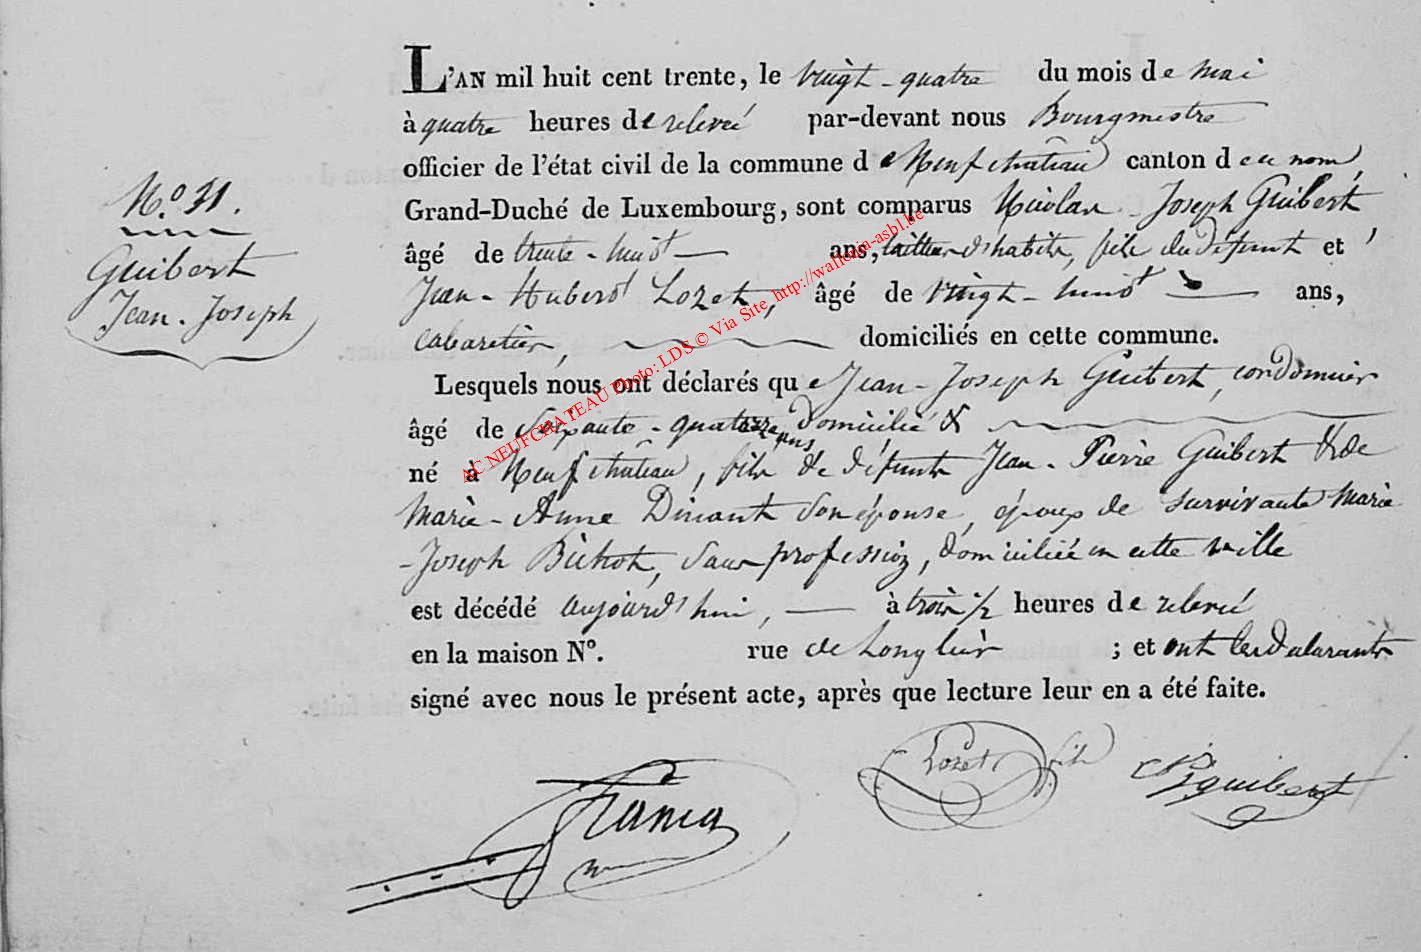 L'AN mil huit cent trente, le vingt-quatre du mois de mai
à quatre heures de relevée par-devant nous Bourgmestre
officier de l'état civil de la commune de Neufchâteau canton de ce nom,
N.º 31.
Grand-Duché de Luxembourg, sont comparus Nicolas-Joseph Guibert
âgé de trente-huit ans, tailleur d'habits, fils du défunt et
Guibert
Jean-Joseph
Jean-Hubert Lozet, âgé de vingt-huit ans,
cabaretier, domiciliés en cette commune.
Lesquels nous ont déclarés que Jean-Joseph Guibert, cordonnier
âgé de soixante-quatorze ans domicilié &
né à Neufchâteau, fils de défunts Jean-Pierre Guibert & de
Marie-Anne Dinant son épouse, époux de survivante Marie
-Joseph Bichot, sans profession, domiciliée en cette ville
est décédé aujourd'hui, à trois 1/2 heures de relevée
en la maison Nº. rue de Longlier ; et ont les déclarants
signé avec nous le présent acte, après que lecture leur en a été faite.
Lozet fils
guibert
AC NEUFCHATEAU Photo: LDS © Via Site http://wallonia-asbl.be